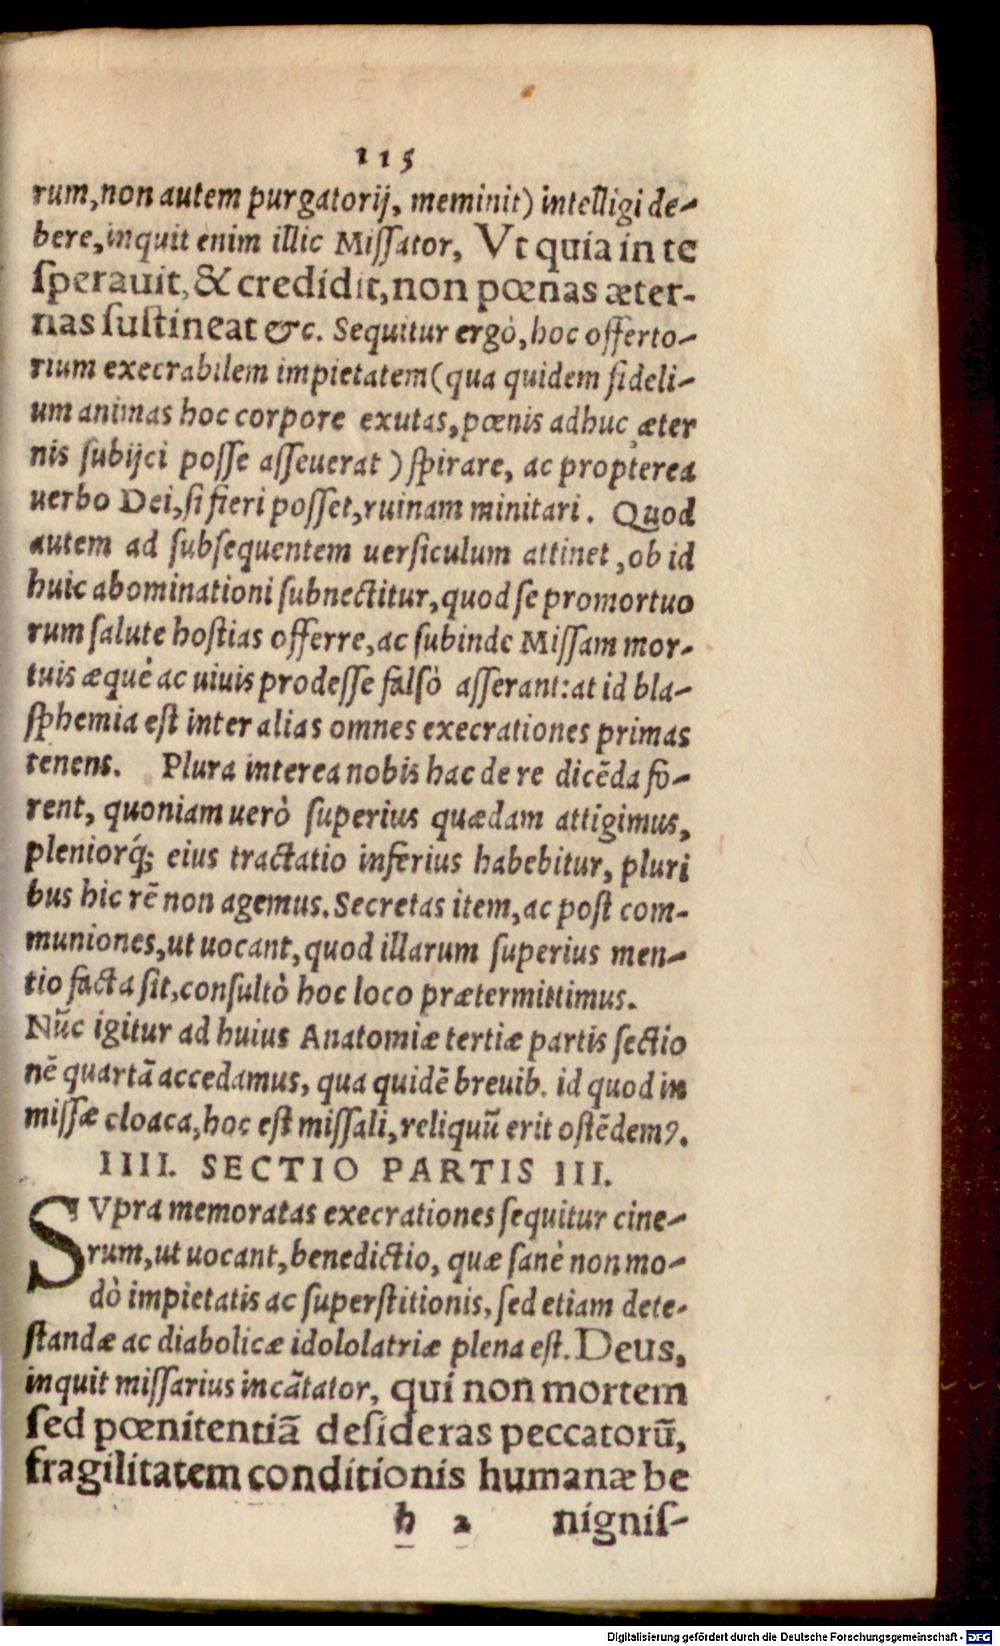 115
rum, non autem purgatorij, meminit) intelligi de-
bere, inquit enim illic Missator, Vt quia in te
sperauit, & credidit, non pœnas æter-
nas sustineat &c. Sequitur ergò, hoc offerto-
rium execrabilem impietatem (qua quidem fideli-
um animas hoc corpore exutas, pœnis adhuc æter
nis subijci posse asseuerat) spirare, ac propterea
uerbo Dei, si fieri posset, ruinam minitari. Quod
autem ad subsequentem uersiculum attinet, ob id
huic abominationi subnectitur, quod se pro mortuo
rum salute hostias offerre, ac subinde Missam mor-
tuis æquè ac uiuis prodesse falsò asserant: at id bla-
sphemia est inter alias omnes execrationes primas
tenens. Plura interea nobis hac de re dicẽda fo-
rent, quoniam uerò superius quædam attigimus,
pleniorq́; eius tractatio inferius habebitur, pluri
bus hic rẽ non agemus. Secretas item, ac post com-
muniones, ut uocant, quod illarum superius men-
tio facta sit, consultò hoc loco prætermittimus.
Nũc igitur ad huius Anatomiæ tertiæ partis sectio
nẽ quartã accedamus, qua quidẽ breuib. id quod in
missæ cloaca, hoc est missali, reliquũ erit ostẽdemꝰ.
IIII. SECTIO PARTIS III.
SVpra memoratas execrationes sequitur cine-
rum, ut uocant, benedictio, quæ sanè non mo-
dò impietatis ac superstitionis, sed etiam dete-
standæ ac diabolicæ idololatriæ plena est. Deus,
inquit missarius incãtator, qui non mortem
sed pœnitentiã desideras peccatorũ,
fragilitatem conditionis humanæ be
h 2 nignis-
Digitalisierung gefördert durch die Deutsche Forschungsgemeinschaft - DFG